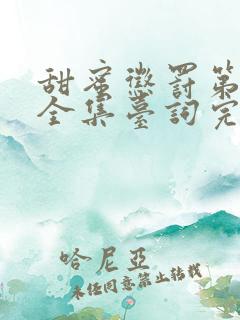 甜蜜懲罰第
全集臺詞完
哈尼亞
未经同意禁止转载